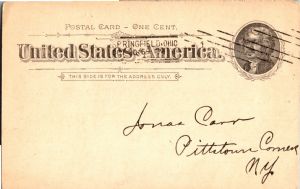 POSTAL CARD - ONE CENT.
SPRINGFIELD, OHIO
United States America.
THIS SIDE IS FOR THE ADDRESS ONLY.
Jonas Carr
Pittstown Corners
N.Y.